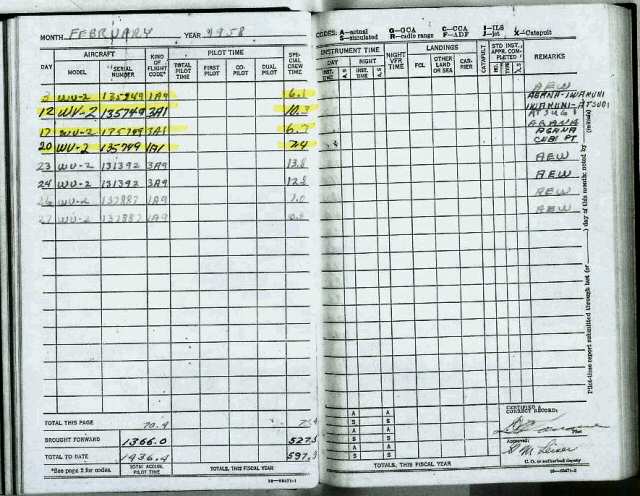 MONTH FEBRUARY YEAR 1958
AIRCRAFT
PILOT TIME
DAY
MODEL
*SERIAL NUMBER
KIND OF FLIGHT CODE*
TOTAL PILOT TIME
FIRST PILOT
CO-PILOT
DUAL PILOT
SPECIAL CREW TIME
3 WV-2 135749 1A9 6.1
12 WV-2 135749 3A1
17 WV-2 3A1
20 WV-2 135749 1A1 7.4
23 WV-2 131392 3A9 13.8
24 WV-2 131392 3A9 12.8
WV-2 137887 1A9 7.0
27 WV-2 137887 1A9
TOTAL THIS PAGE 70.4
BROUGHT FORWARD 1366.0
TOTAL TO DATE 1436.4
*See page 2 for codes.
TOTAL ACCUM. PILOT TIME
TOTALS, THIS FISCAL YEAR
CODES: A—actual G—GCA C—CCA I—ILS
S—simulated R—radio range F—ADF J—jet X—Catapult
INSTRUMENT TIME
DAY
NIGHT
INST. TIME
A, S
INST. TIME
A, S
NIGHT VFR TIME
LANDINGS
FCL
OTHER LAND OR SEA
CARRIER
CATAPULT
STD INST. APP. COMPLETED
NO.
REMARKS
AEW
AGANA-IWAKUNI
IWAKUNI-ATSUGI
ATSUGI
AGANA
AGANA
CUBI PT
AEW
AEW
AEW
AEW
day of this month; noted by (initials)
Pilot-time report submitted through last (or
A
A
S
S
A
A
S
S
A
A
S
S
TOTALS, THIS FISCAL YEAR
CERTIFIED A CORRECT RECORD:
Approved:
C. O. or authorized deputy